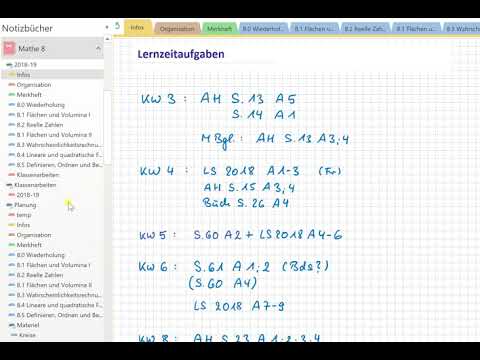 Notizbücher
Mathe 8
2018-19
Infos
Organisation
Merkheft
8.0 Wiederholung
8.1 Flächen und Volumina I
8.2 Reelle Zahlen
8.1 Flächen und Volumina II
8.3 Wahrscheinlichkeitsrechnu
8.4 Lineare und quadratische F
8.5 Definieren, Ordnen und Be
Klassenarbeiten
Klassenarbeiten
2018-19
Planung
temp
Infos
Organisation
Merkheft
8.0 Wiederholung
8.1 Flächen und Volumina I
8.2 Reelle Zahlen
8.1 Flächen und Volumina II
8.3 Wahrscheinlichkeitsrechnu
8.4 Lineare und quadratische F
8.5 Definieren, Ordnen und Be
Materiel
Kreise
5 Infos Organisation Merkheft 8.0 Wiederhol... 8.1 Flächen un... 8.2 Reelle Zahl... 8.1 Flächen u... 8.3 Wahrschein
Lernzeitaufgaben
KW 3 : AH S.13 A5
S.14 A1
MBgl.: AH S.13 A3,4
KW 4 : LS 2018 A1-3 (Fr)
AH S.15 A3,4
Buch S.26 A4
KW 5 : S.60 A2 + LS 2018 A4-6
KW 6 : S.61 A1,2 (Bds?)
(S.60 A4)
LS 2018 A7-9
KW 8 : AH S.23 A1-2,3,4